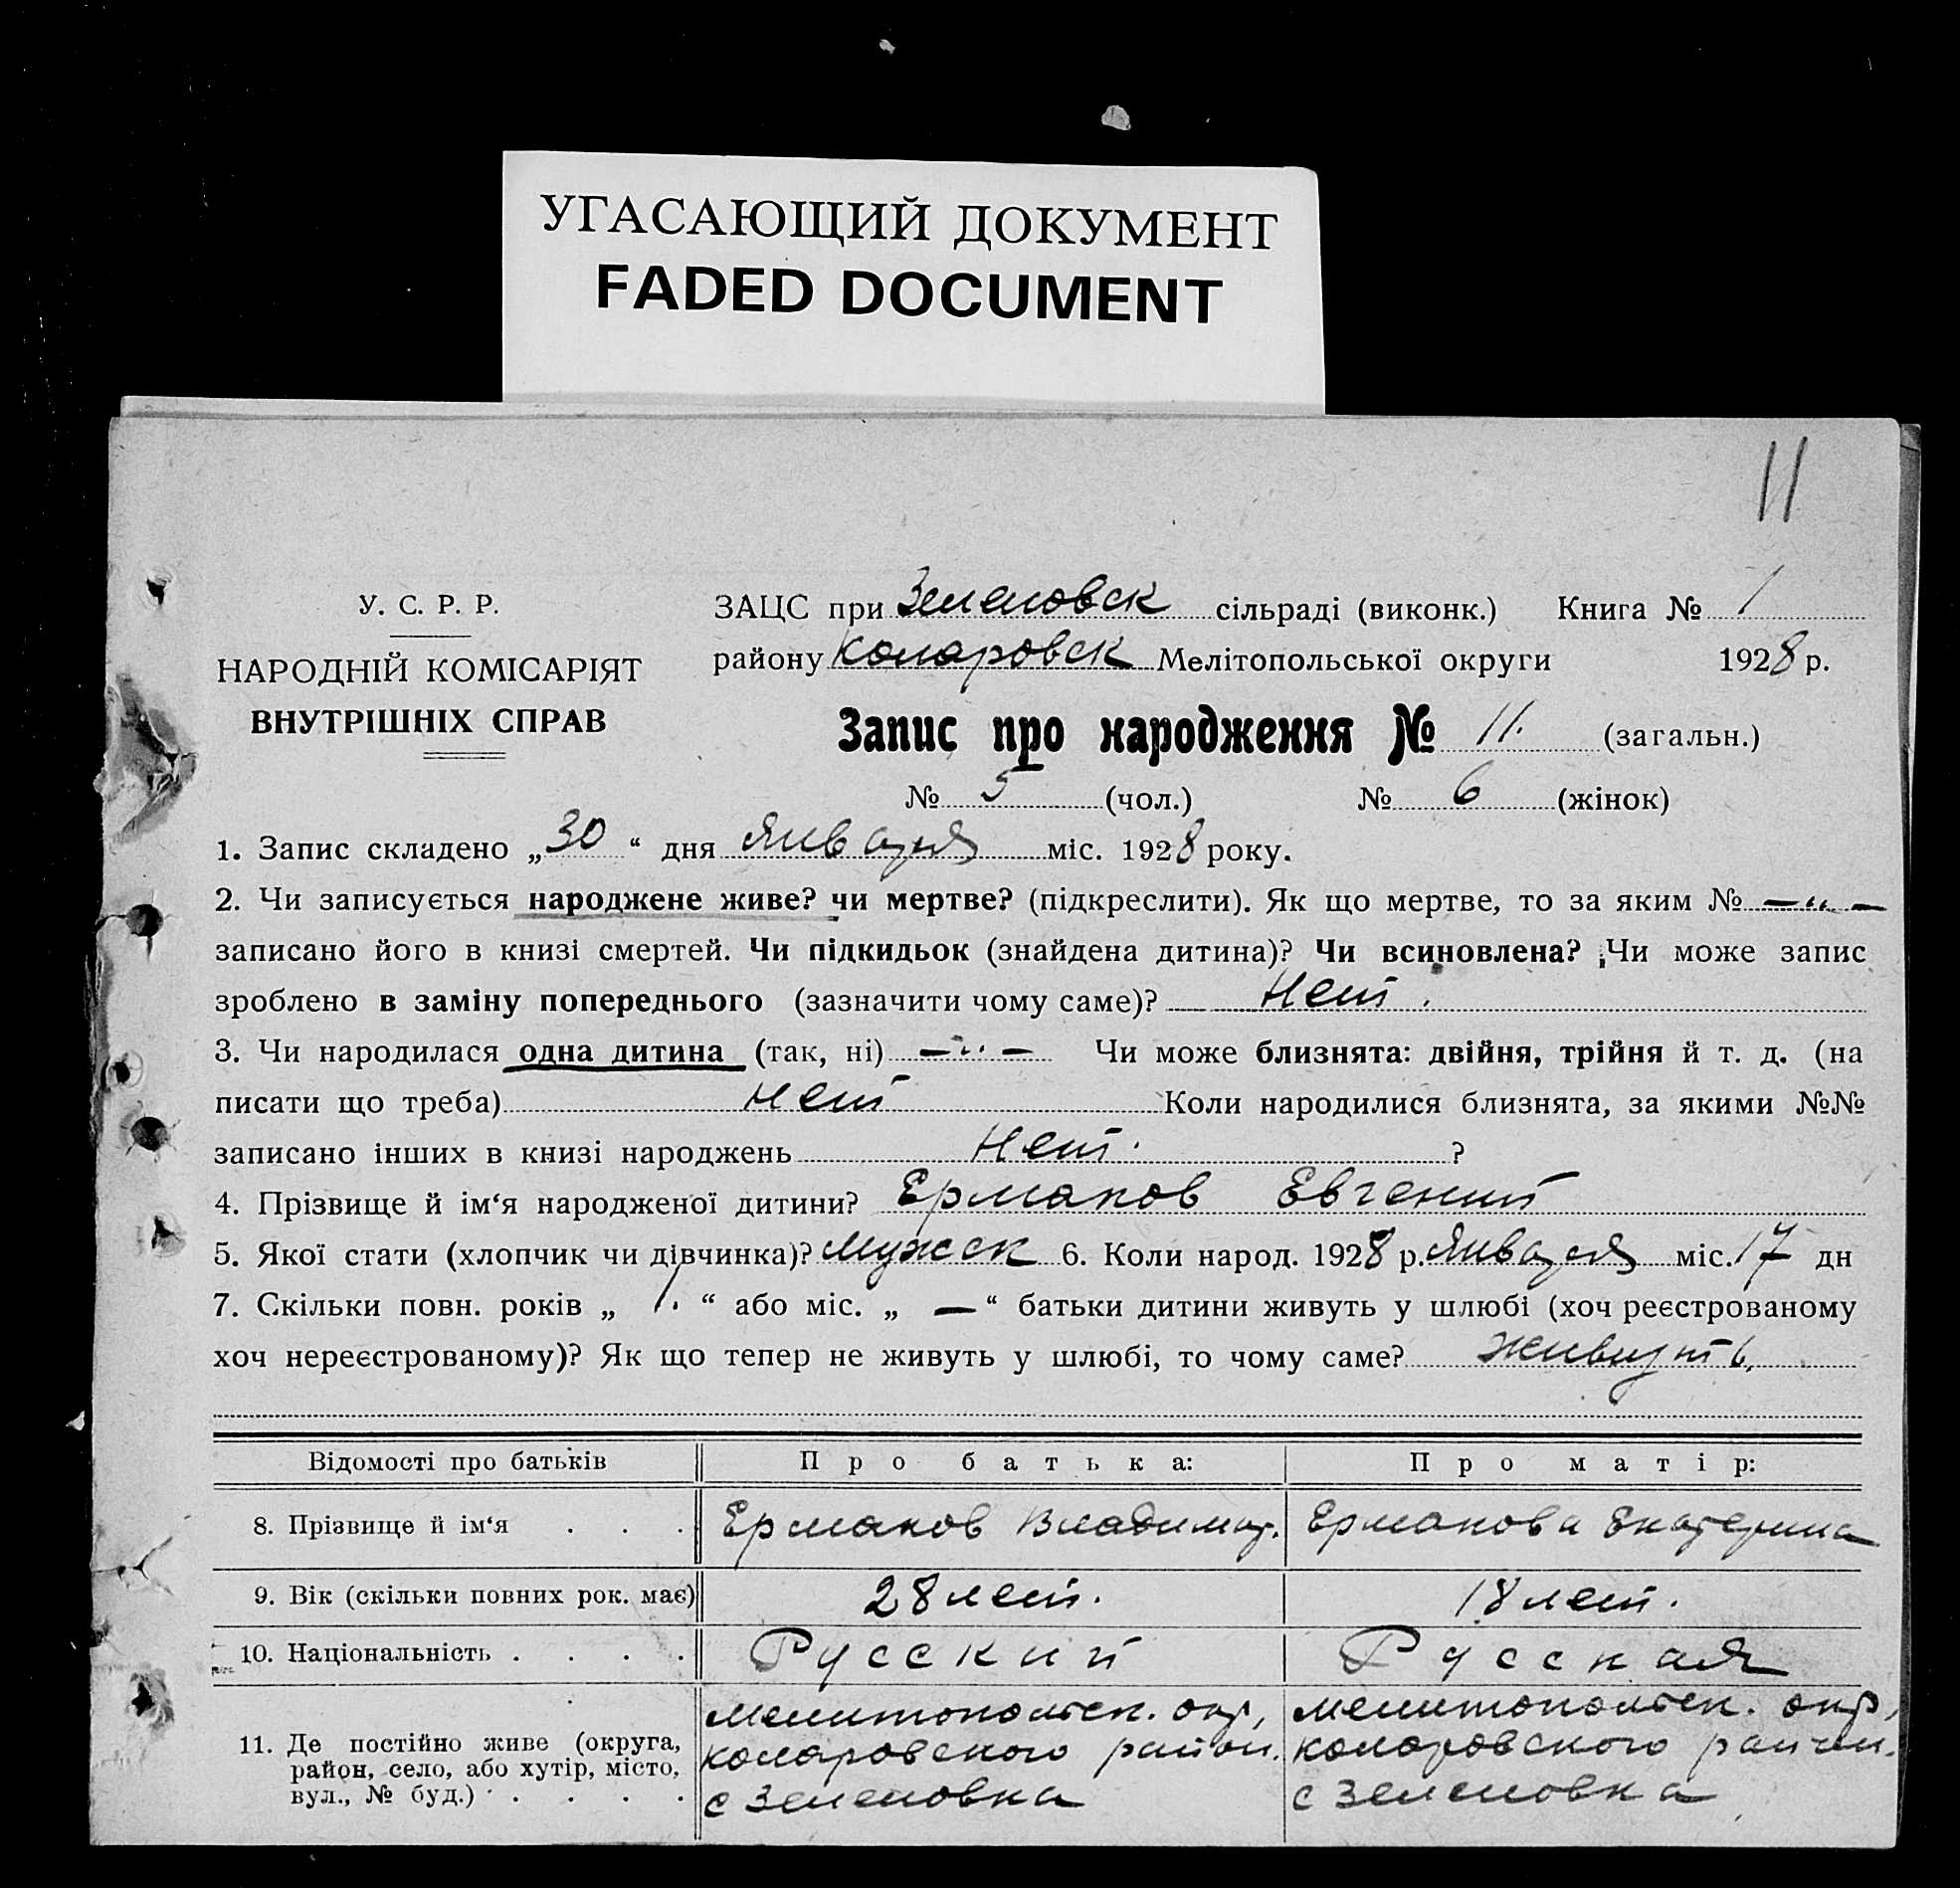 УГАСАЮЩИЙ ДОКУМЕНТ
FADED DOCUMENT
11
У. С. Р. Р.
НАРОДНІЙ КОМІСАРІЯТ
ВНУТРІШНІХ СПРАВ
ЗАЦС при Зеленовск сільраді (виконк.) Книга № 1
району Коларовск Мелітопольської округи 1928 р.
Запис про народження № 11. (загальн.)
№ 5 (чол.) № 6 (жінок)
1. Запис складено „30“ дня Января міс. 1928 року.
2. Чи записується народжене живе? чи мертве? (підкреслити). Як що мертве, то за яким № —„—
записано його в книзі смертей. Чи підкидьок (знайдена дитина)? Чи всиновлена? Чи може запис
зроблено в заміну попереднього (зазначити чому саме)? Нет.
3. Чи народилася одна дитина (так, ні) —„— Чи може близнята: двійня, трійня й т. д. (на
писати що треба) нет Коли народилися близнята, за якими №№
записано інших в книзі народжень Нет. ?
4. Прізвище й ім‘я народженої дитини? Ермаков Евгений
5. Якої стати (хлопчик чи дівчинка)? Мужск 6. Коли народ. 1928 р. Января міс. 17 дн
7. Скільки повн. років „ 1. “ або міс. „ — “ батьки дитини живуть у шлюбі (хоч реєстрованому
хоч нереєстрованому)? Як що тепер не живуть у шлюбі, то чому саме? живуть.
Відомості про батьків Про батька: Про матір:
8. Прізвище й ім‘я . . . Ермаков Владимир. Ермакова Екатерина
9. Вік (скільки повних рок. має) 28 лет. 18 лет.
10. Національність . . . . Русский Русская
11. Де постійно живе (округа, район, село, або хутір, місто, вул., № буд.) . . . .
Мелитопольск. окр,
коларовского район.
с Зеленовка
Мелитопольск. окр,
коларовского район.
с Зеленовка